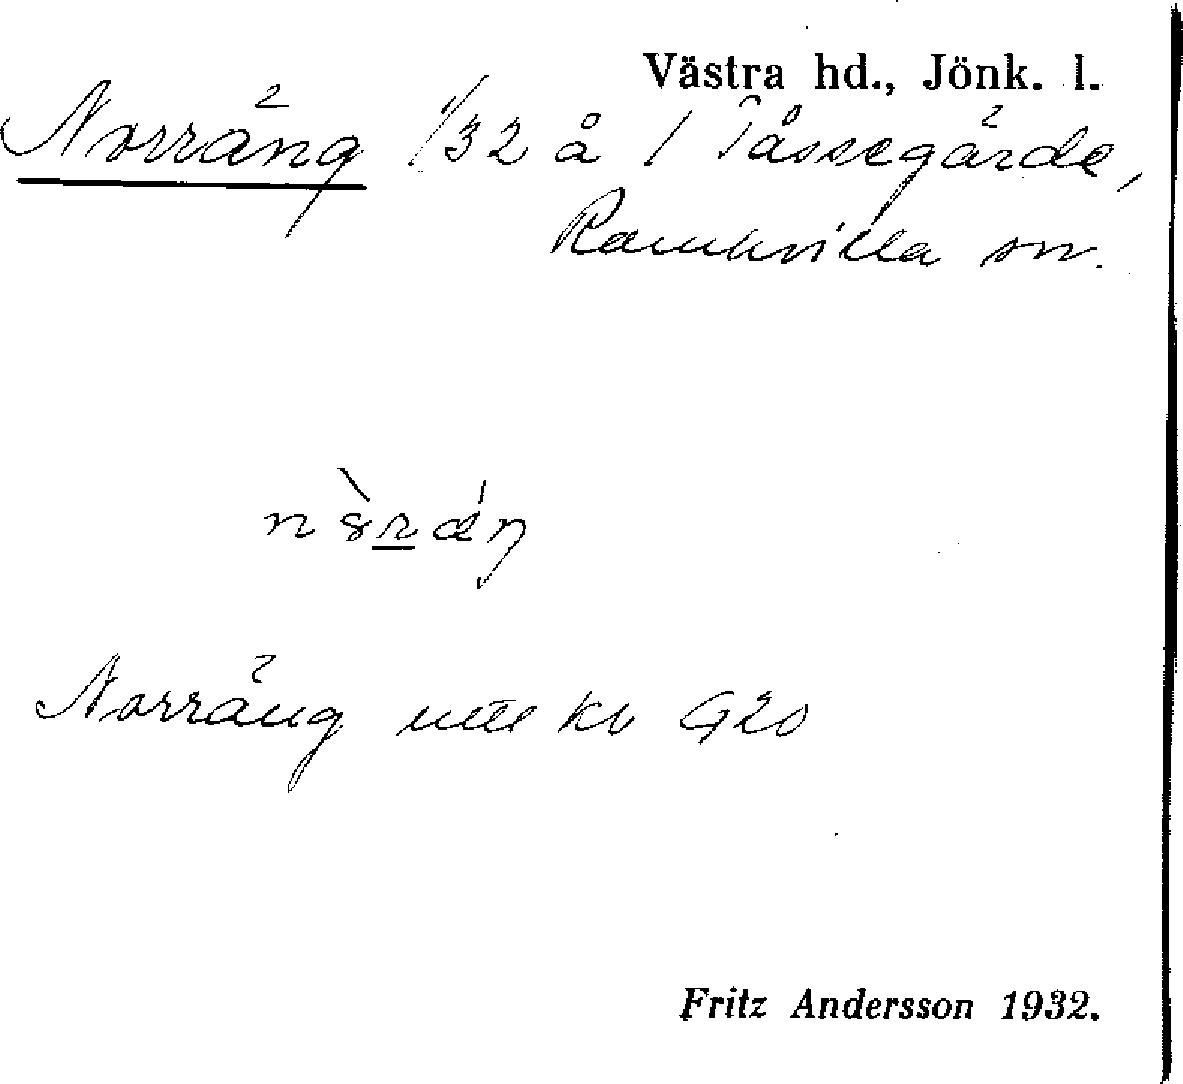 Västra hd., Jönk. l.
Norräng 1/32 å 1 Påssegärde,
Ramkvilla sn.
Norräng kb G20
Fritz Andersson 1932.